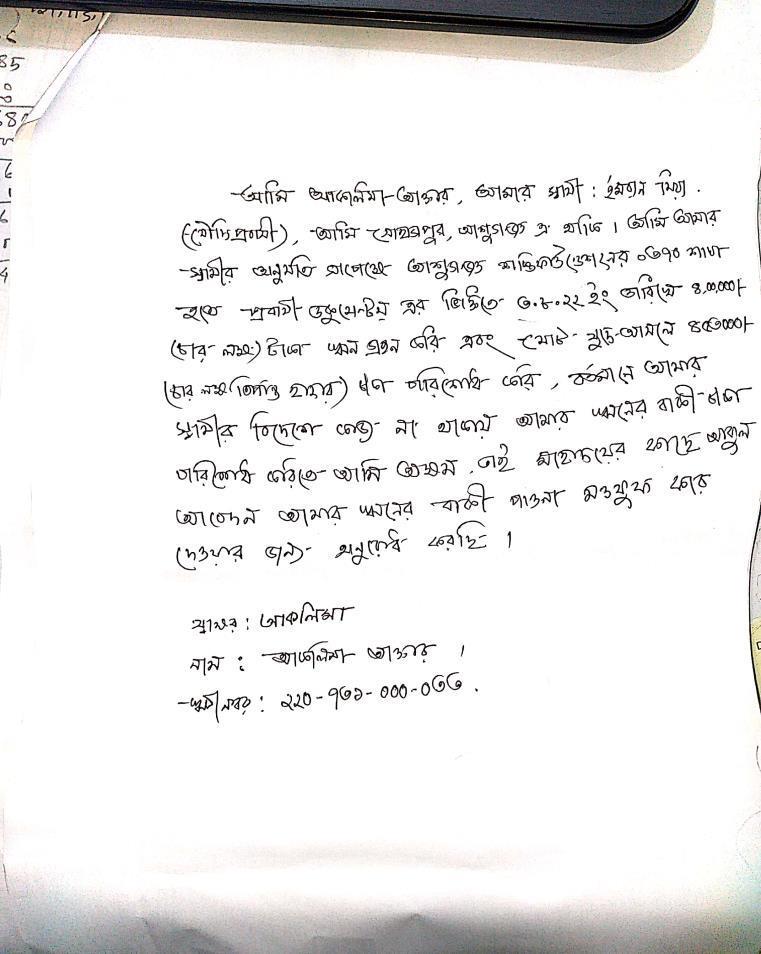 আমি আকলিমা আক্তার, আমার স্বামী : ইমরান মিয়া .
(সৌদি প্রবাসী), আমি সোহাগপুর, আশুগঞ্জ এ থাকি । আমি আমার
স্বামীর অনুমতি সাপেক্ষে আশুগঞ্জ শক্তি ফাউন্ডেশনের ০৩৭০ শাখা
হতে প্রবাসী ডকুমেন্টস এর ভিত্তিতে ৩.৮.২২ ইং তারিখে ৪,০০,০০০/-
(চার লক্ষ) টাকা লোন গ্রহন করি এবং মোট সুদে-আসলে ৪৫৩০০০/-
(চার লক্ষ তিপ্পান্ন হাজার) টাকা পরিশোধ করি , বর্তমানে আমার
স্বামীর বিদেশে কাজ না থাকায় আমার লোনের বাকী টাকা
পরিশোধ করিতে আমি অক্ষম . তাই মহোদয়ের কাছে আকুল
আবেদন আমার লোনের বাকী পাওনা মওকুফ করে
দেওয়ার জন্য অনুরোধ করছি ।
স্বাক্ষর : আকলিমা
নাম : আকলিমা আক্তার ।
কর্মী নম্বর : ২২০-৭৩১-০০০-০৩৩ .
85